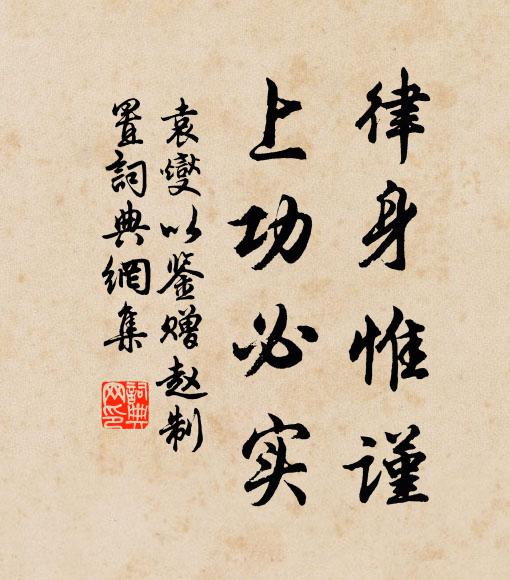 律身惟谨
上功必实
袁燮以鉴赠赵制
置詞典網集
詞典
网印